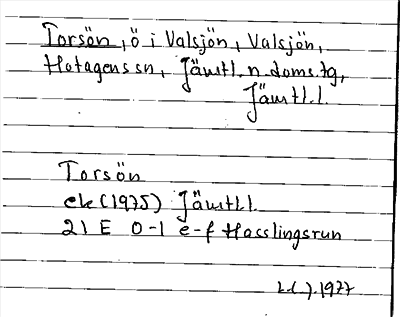 Torsön, ö i Valsjön, Valsjön,
Hotagens sn, Jämtl. n. doms. tg,
Jämtl. l.
Torsön
ek (1975) Jämtl. l.
21 E 0-1 e-f Hasslingsrun
1977